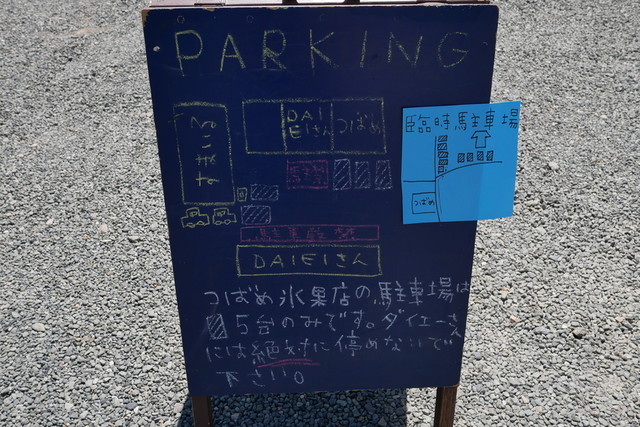 PARKING
DAIEIさん
つばめ
臨時駐車場
つばめ
駐車厳禁
DAIEIさん
つばめ氷果店の駐車場は
5台のみです。ダイエーさん
には絶対に停めないで
下さい。